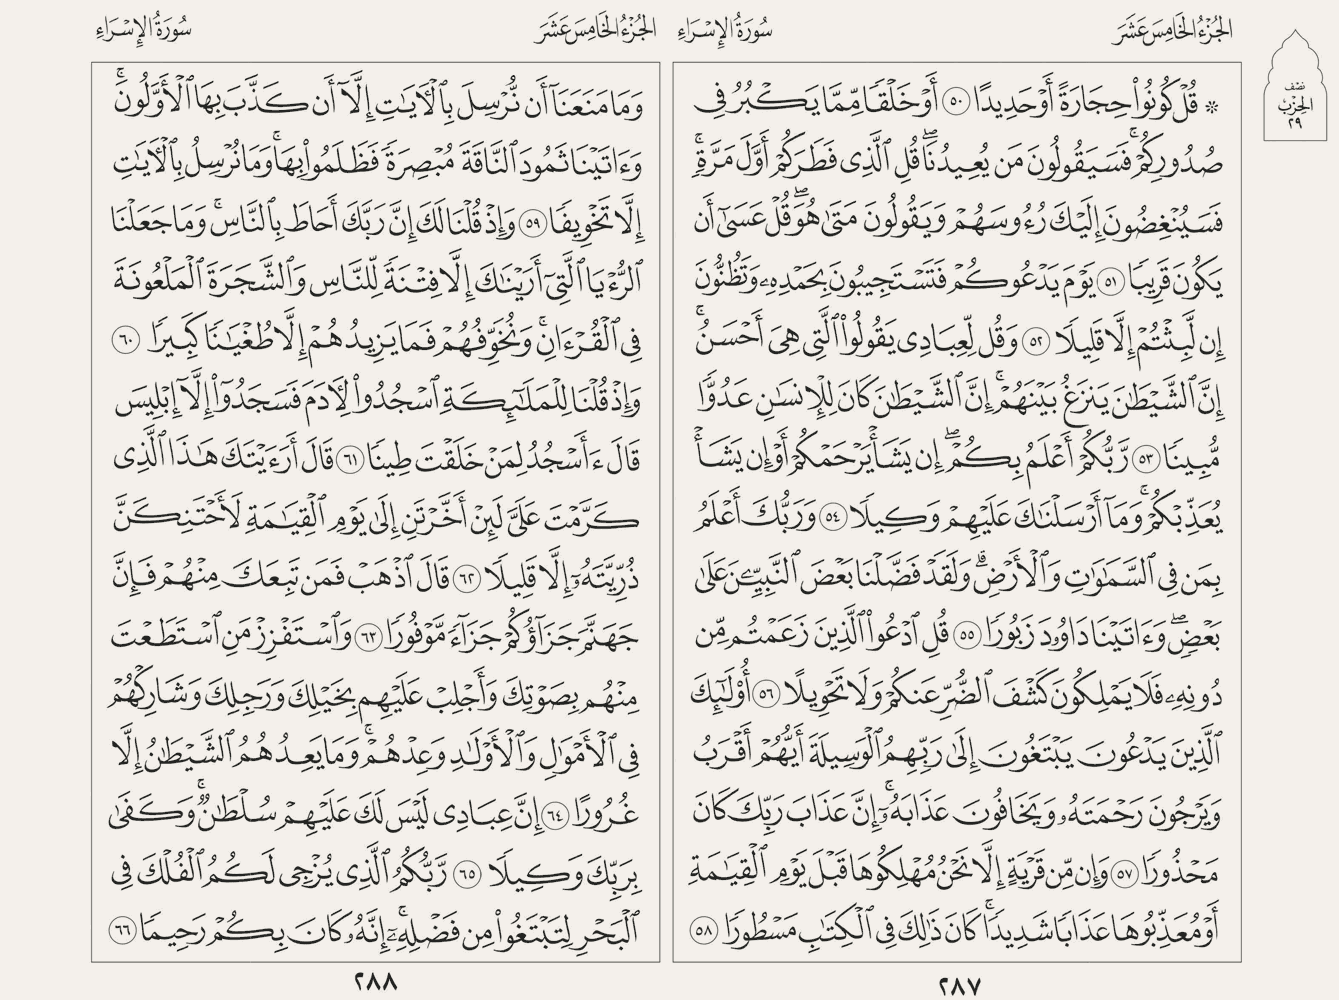 الجُزْءُ الخَامِسَ عَشَرَ
سُورَةُ الإِسْرَاءِ
نصف
الحزب
٢٩
۞ قُلْ كُونُوا۟ حِجَارَةً أَوْ حَدِيدًا ٥٠ أَوْ خَلْقًا مِّمَّا يَكْبُرُ فِى
صُدُورِكُمْ ۚ فَسَيَقُولُونَ مَن يُعِيدُنَا ۖ قُلِ ٱلَّذِى فَطَرَكُمْ أَوَّلَ مَرَّةٍ ۚ
فَسَيُنْغِضُونَ إِلَيْكَ رُءُوسَهُمْ وَيَقُولُونَ مَتَىٰ هُوَ ۖ قُلْ عَسَىٰٓ أَن
يَكُونَ قَرِيبًا ٥١ يَوْمَ يَدْعُوكُمْ فَتَسْتَجِيبُونَ بِحَمْدِهِۦ وَتَظُنُّونَ
إِن لَّبِثْتُمْ إِلَّا قَلِيلًا ٥٢ وَقُل لِّعِبَادِى يَقُولُوا۟ ٱلَّتِى هِىَ أَحْسَنُ ۚ
إِنَّ ٱلشَّيْطَٰنَ يَنزَغُ بَيْنَهُمْ ۚ إِنَّ ٱلشَّيْطَٰنَ كَانَ لِلْإِنسَٰنِ عَدُوًّا
مُّبِينًا ٥٣ رَّبُّكُمْ أَعْلَمُ بِكُمْ ۖ إِن يَشَأْ يَرْحَمْكُمْ أَوْ إِن يَشَأْ
يُعَذِّبْكُمْ ۚ وَمَآ أَرْسَلْنَٰكَ عَلَيْهِمْ وَكِيلًا ٥٤ وَرَبُّكَ أَعْلَمُ
بِمَن فِى ٱلسَّمَٰوَٰتِ وَٱلْأَرْضِ ۗ وَلَقَدْ فَضَّلْنَا بَعْضَ ٱلنَّبِيِّـۧنَ عَلَىٰ
بَعْضٍ ۖ وَءَاتَيْنَا دَاوُۥدَ زَبُورًا ٥٥ قُلِ ٱدْعُوا۟ ٱلَّذِينَ زَعَمْتُم مِّن
دُونِهِۦ فَلَا يَمْلِكُونَ كَشْفَ ٱلضُّرِّ عَنكُمْ وَلَا تَحْوِيلًا ٥٦ أُو۟لَٰٓئِكَ
ٱلَّذِينَ يَدْعُونَ يَبْتَغُونَ إِلَىٰ رَبِّهِمُ ٱلْوَسِيلَةَ أَيُّهُمْ أَقْرَبُ
وَيَرْجُونَ رَحْمَتَهُۥ وَيَخَافُونَ عَذَابَهُۥٓ ۚ إِنَّ عَذَابَ رَبِّكَ كَانَ
مَحْذُورًا ٥٧ وَإِن مِّن قَرْيَةٍ إِلَّا نَحْنُ مُهْلِكُوهَا قَبْلَ يَوْمِ ٱلْقِيَٰمَةِ
أَوْ مُعَذِّبُوهَا عَذَابًا شَدِيدًا ۚ كَانَ ذَٰلِكَ فِى ٱلْكِتَٰبِ مَسْطُورًا ٥٨
٢٨٧
الجُزْءُ الخَامِسَ عَشَرَ
سُورَةُ الإِسْرَاءِ
وَمَا مَنَعَنَآ أَن نُّرْسِلَ بِٱلْـَٔايَٰتِ إِلَّآ أَن كَذَّبَ بِهَا ٱلْأَوَّلُونَ ۚ
وَءَاتَيْنَا ثَمُودَ ٱلنَّاقَةَ مُبْصِرَةً فَظَلَمُوا۟ بِهَا ۚ وَمَا نُرْسِلُ بِٱلْـَٔايَٰتِ
إِلَّا تَخْوِيفًا ٥٩ وَإِذْ قُلْنَا لَكَ إِنَّ رَبَّكَ أَحَاطَ بِٱلنَّاسِ ۚ وَمَا جَعَلْنَا
ٱلرُّءْيَا ٱلَّتِىٓ أَرَيْنَٰكَ إِلَّا فِتْنَةً لِّلنَّاسِ وَٱلشَّجَرَةَ ٱلْمَلْعُونَةَ
فِى ٱلْقُرْءَانِ ۚ وَنُخَوِّفُهُمْ فَمَا يَزِيدُهُمْ إِلَّا طُغْيَٰنًا كَبِيرًا ٦٠
وَإِذْ قُلْنَا لِلْمَلَٰٓئِكَةِ ٱسْجُدُوا۟ لِـَٔادَمَ فَسَجَدُوٓا۟ إِلَّآ إِبْلِيسَ
قَالَ ءَأَسْجُدُ لِمَنْ خَلَقْتَ طِينًا ٦١ قَالَ أَرَءَيْتَكَ هَٰذَا ٱلَّذِى
كَرَّمْتَ عَلَىَّ لَئِنْ أَخَّرْتَنِ إِلَىٰ يَوْمِ ٱلْقِيَٰمَةِ لَأَحْتَنِكَنَّ
ذُرِّيَّتَهُۥٓ إِلَّا قَلِيلًا ٦٢ قَالَ ٱذْهَبْ فَمَن تَبِعَكَ مِنْهُمْ فَإِنَّ
جَهَنَّمَ جَزَآؤُكُمْ جَزَآءً مَّوْفُورًا ٦٣ وَٱسْتَفْزِزْ مَنِ ٱسْتَطَعْتَ
مِنْهُم بِصَوْتِكَ وَأَجْلِبْ عَلَيْهِم بِخَيْلِكَ وَرَجِلِكَ وَشَارِكْهُمْ
فِى ٱلْأَمْوَٰلِ وَٱلْأَوْلَٰدِ وَعِدْهُمْ ۚ وَمَا يَعِدُهُمُ ٱلشَّيْطَٰنُ إِلَّا
غُرُورًا ٦٤ إِنَّ عِبَادِى لَيْسَ لَكَ عَلَيْهِمْ سُلْطَٰنٌ ۚ وَكَفَىٰ
بِرَبِّكَ وَكِيلًا ٦٥ رَّبُّكُمُ ٱلَّذِى يُزْجِى لَكُمُ ٱلْفُلْكَ فِى
ٱلْبَحْرِ لِتَبْتَغُوا۟ مِن فَضْلِهِۦٓ ۚ إِنَّهُۥ كَانَ بِكُمْ رَحِيمًا ٦٦
٢٨٨